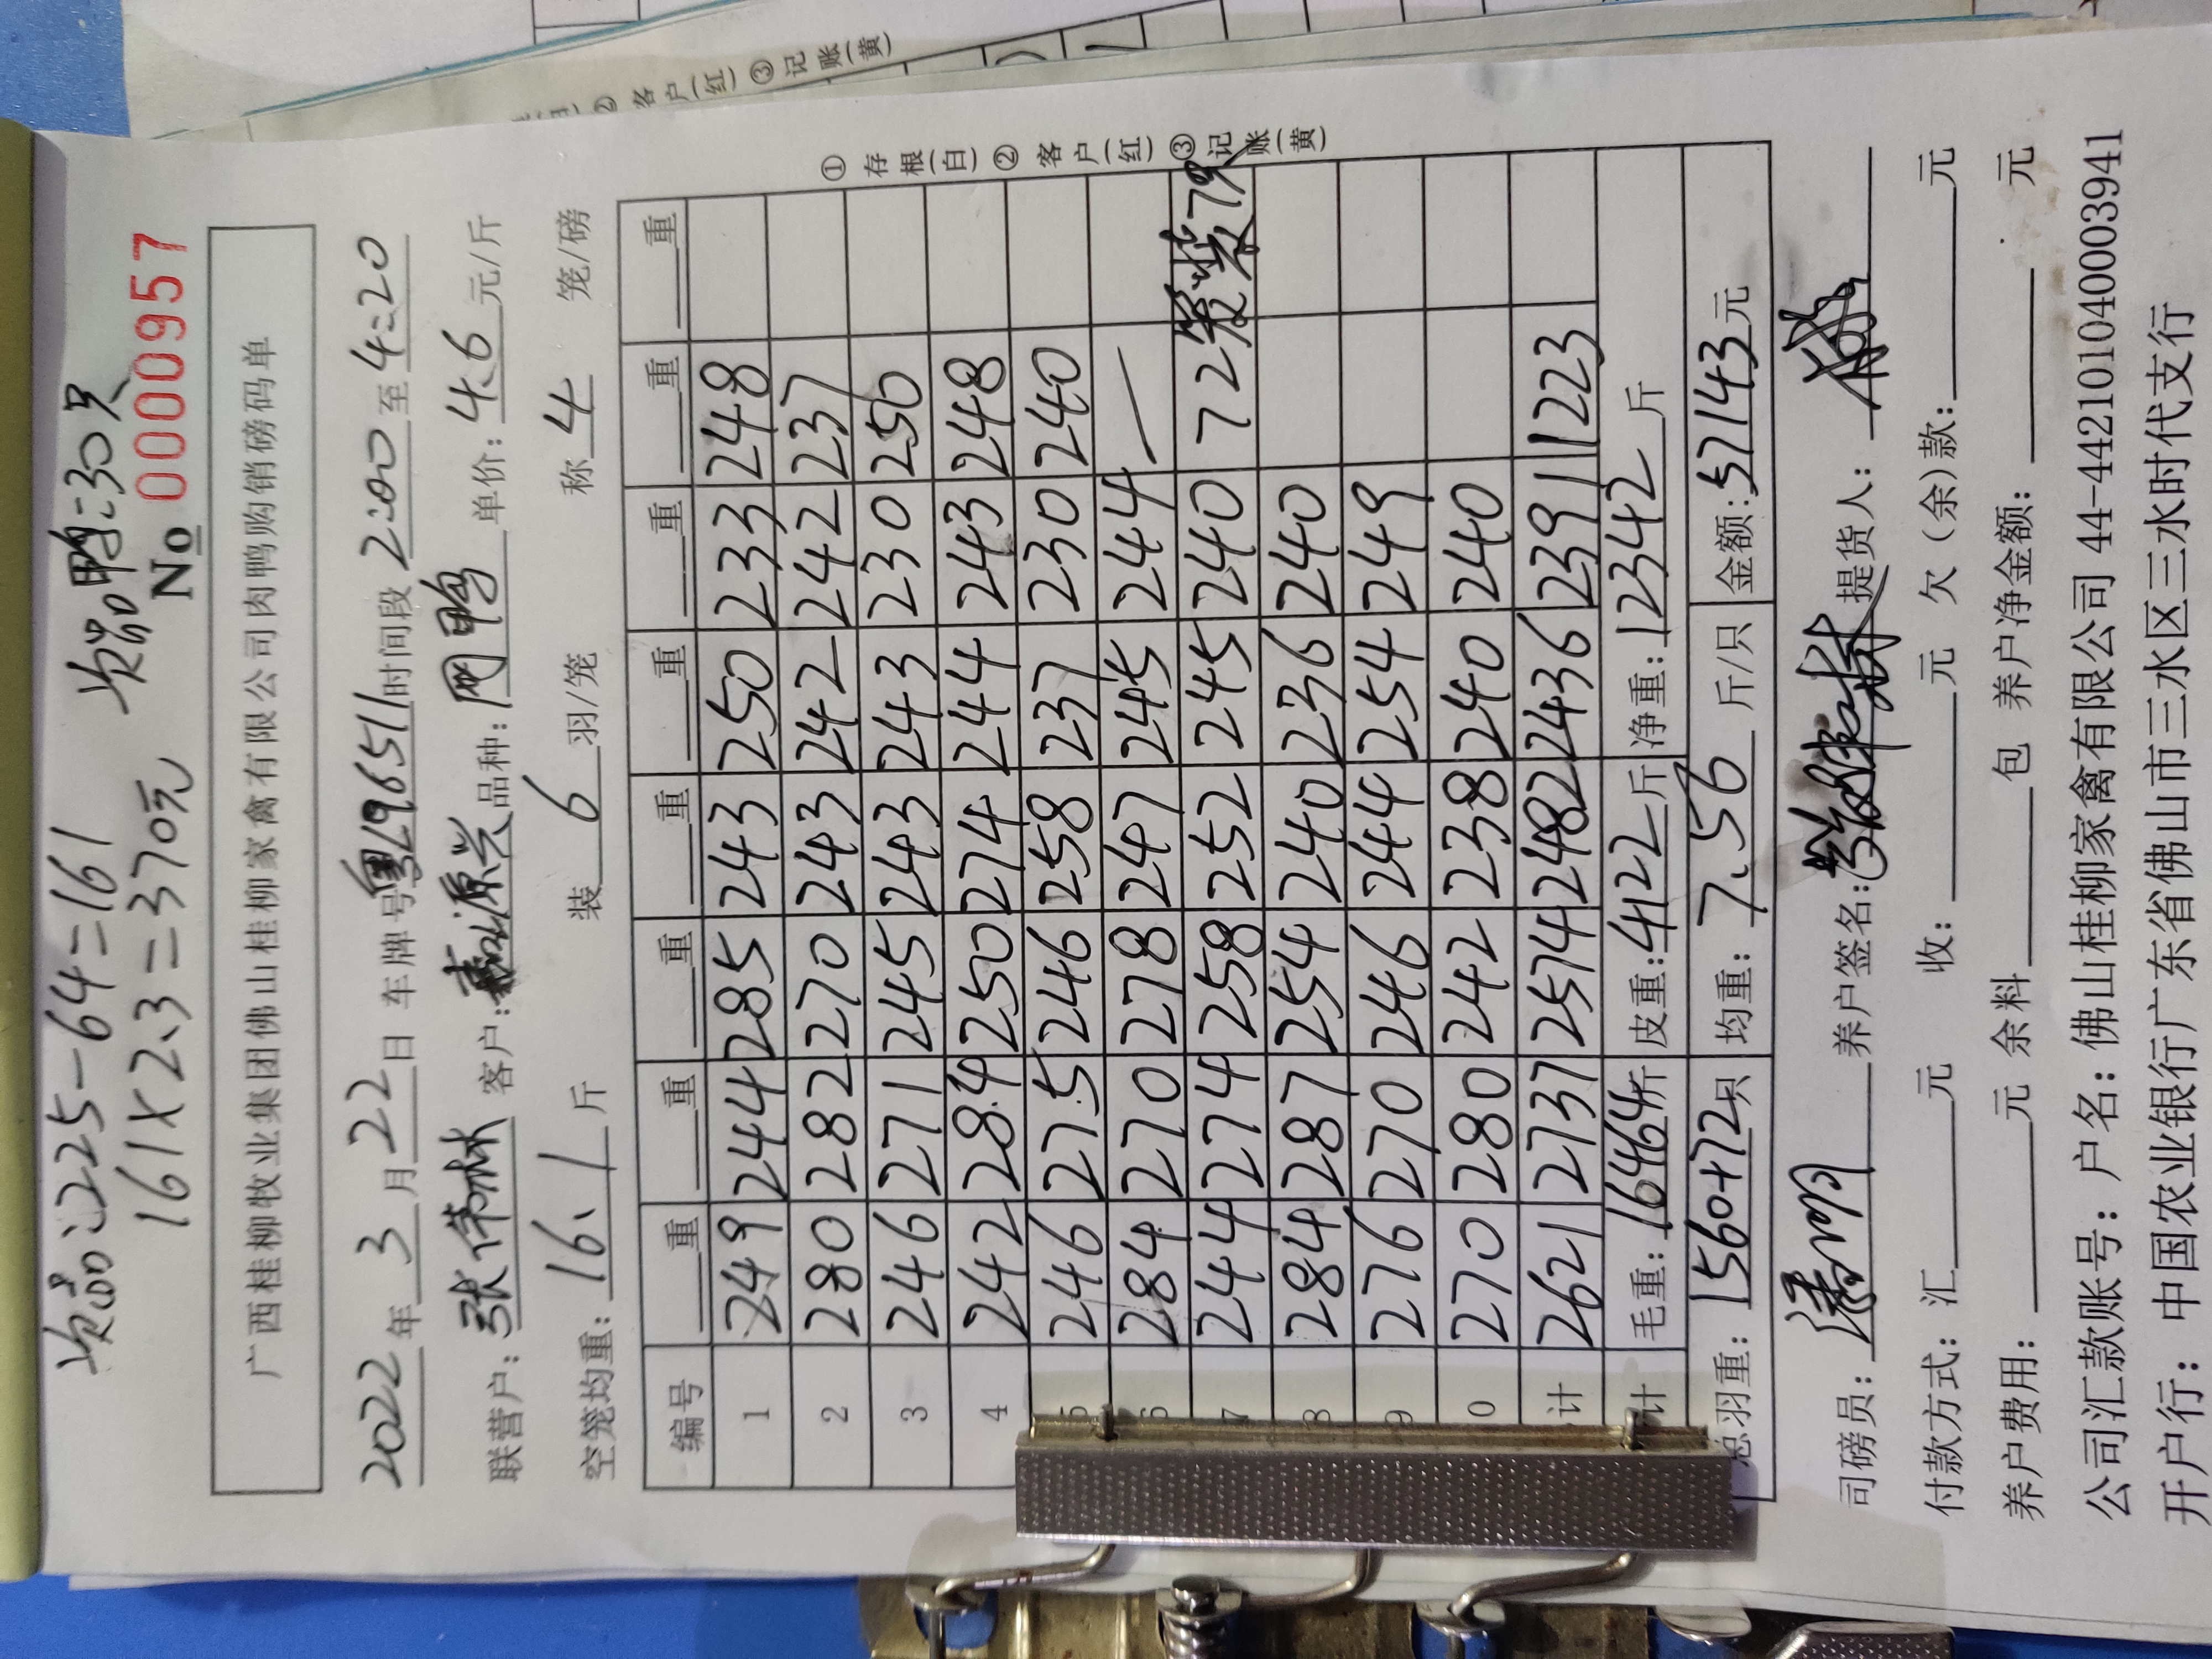 次品:225-64=161 次品鸭:30只
161×2.3=370元
No 0000957
广西桂柳牧业集团佛山桂柳家禽有限公司肉鸭购销磅码单
2022年3月22日 车牌号粤L96511时间段2:00至4:20
联营户:张伟林 客户:嘉源兴 品种: 单价:4.6元/斤
空笼均重:16.1斤 装6羽/笼 称4笼/磅
编号 重 重 重 重 重 重 重 重
1 249 244 285 243 250 233 248
2 280 282 270 243 242 242 237
3 246 271 245 243 243 230 250
4 242 284 250 274 244 243 248
5 246 275 246 258 237 230 240
6 284 270 278 247 245 244 —
7 244 274 258 252 245 240 72笼装79
8 284 287 254 240 236 240
9 276 270 246 244 254 249
0 270 280 242 238 240 240
计 2621 2737 2574 2482 2436 2391 1223
计 毛重:16464斤 皮重:4122斤 净重:12342斤
总羽重:1560+72只 均重:7.56斤/只 金额:57143元
①存根(白)②客户(红)③记账(黄)
司磅员: 养户签名: 提货人:
付款方式:汇 元 收: 元 欠(余)款: 元
养户费用: 元 余料 包 养户净金额: 元
公司汇款账号:户名:佛山桂柳家禽有限公司 44-442101040003941
开户行:中国农业银行广东省佛山市三水区三水时代支行
② 客户(红)③ 记账(黄)